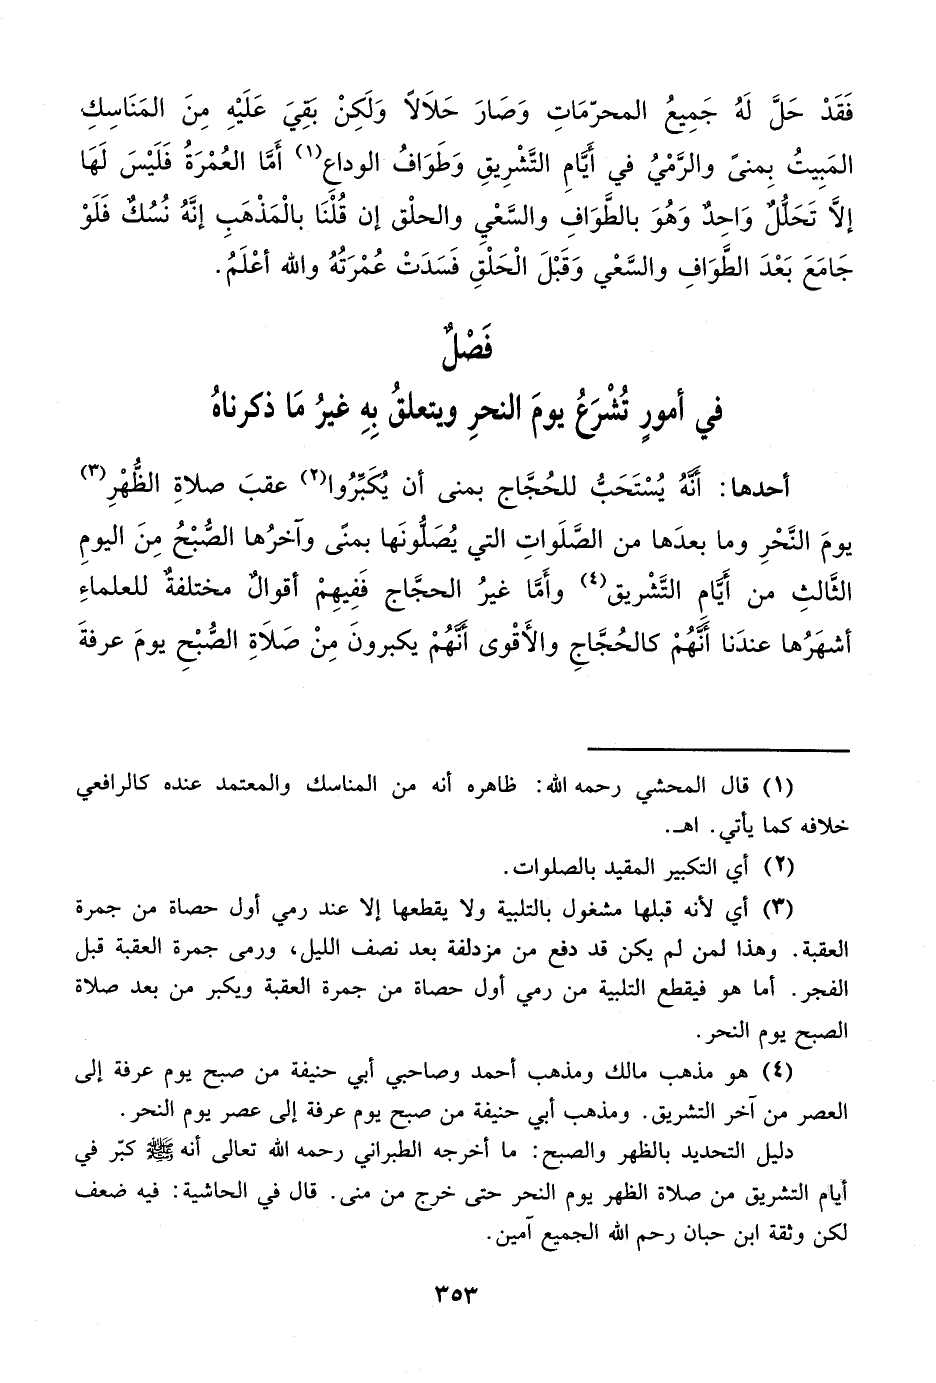 فَقَدْ حَلَّ لَهُ جَمِيعُ المحرّمَاتِ وَصَارَ حَلَالاً وَلَكِنْ بَقِيَ عَلَيْهِ مِنَ المَنَاسِكِ
المَبِيتُ بِمنىً والرَّمْيُ في أَيَّامِ التَّشْرِيقِ وَطَوَافُ الوداعِ(١) أَمَّا العُمْرَةُ فَلَيْسَ لَهَا
إلاَّ تَحَلُّلٌ وَاحِدٌ وَهُوَ بالطَّوَافِ والسَّعْيِ والحلْق إن قُلْنَا بالْمَذْهَبِ إنَّهُ نُسُكٌ فَلَوْ
جَامَعَ بَعْدَ الطَّوَافِ والسَّعْي وَقَبْلَ الْحَلْقِ فَسَدَتْ عُمْرَتُهُ والله أعْلَمُ.
فَصْلٌ
في أمورٍ تُشْرَعُ يومَ النحرِ ويتعلقُ بِهِ غيرُ مَا ذكرناهُ
أحدها: أَنَّهُ يُسْتَحَبُّ للحُجَّاج بمنى أن يُكَبِّرُوا(٢) عقبَ صلاةِ الظُّهْرِ(٣)
يومَ النَّحْرِ وما بعدَها من الصَّلَواتِ التي يُصَلُّونَها بمنًى وآخرُها الصُّبْحُ مِنَ اليومِ
الثَّالثِ من أَيَّامِ التَّشْريق(٤) وأمَّا غيرُ الحجَّاج فَفِيهِمْ أقوالٌ مختلفةٌ للعلماءِ
أشهَرُها عندَنا أَنَّهُمْ كالحُجَّاجِ والأَقْوى أَنَّهُمْ يكبرونَ مِنْ صَلَاةِ الصُّبْحِ يومَ عرفةَ
(١) قال المحشي رحمه الله: ظاهره أنه من المناسك والمعتمد عنده كالرافعي
خلافه كما يأتي. اهـ.
(٢) أي التكبير المقيد بالصلوات.
(٣) أي لأنه قبلها مشغول بالتلبية ولا يقطعها إلا عند رمي أول حصاة من جمرة
العقبة. وهذا لمن لم يكن قد دفع من مزدلفة بعد نصف الليل، ورمى جمرة العقبة قبل
الفجر. أما هو فيقطع التلبية من رمي أول حصاة من جمرة العقبة ويكبر من بعد صلاة
الصبح يوم النحر.
(٤) هو مذهب مالك ومذهب أحمد وصاحبي أبي حنيفة من صبح يوم عرفة إلى
العصر من آخر التشريق. ومذهب أبي حنيفة من صبح يوم عرفة إلى عصر يوم النحر.
دليل التحديد بالظهر والصبح: ما أخرجه الطبراني رحمه الله تعالى أنه ﷺ كبّر في
أيام التشريق من صلاة الظهر يوم النحر حتى خرج من منى. قال في الحاشية: فيه ضعف
لكن وثقة ابن حبان رحم الله الجميع آمين.
٣٥٣